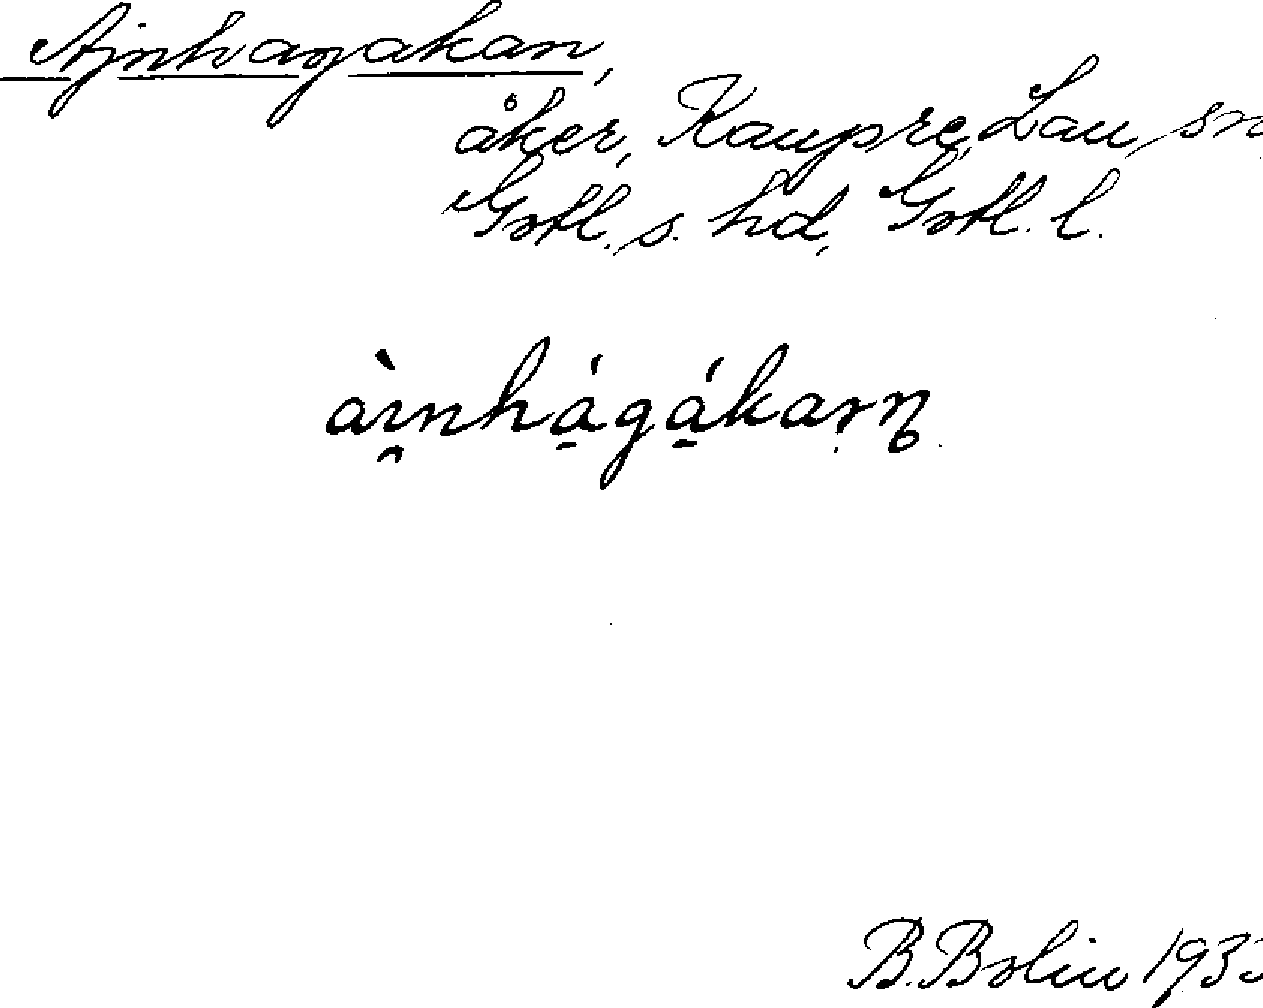 Ajnhagakan,
åker, Kaupre, Lau, sn
Gotl. s. hd, Gotl. l.
àı̯nhá̱gá̱karṇ
B. Bolin 193